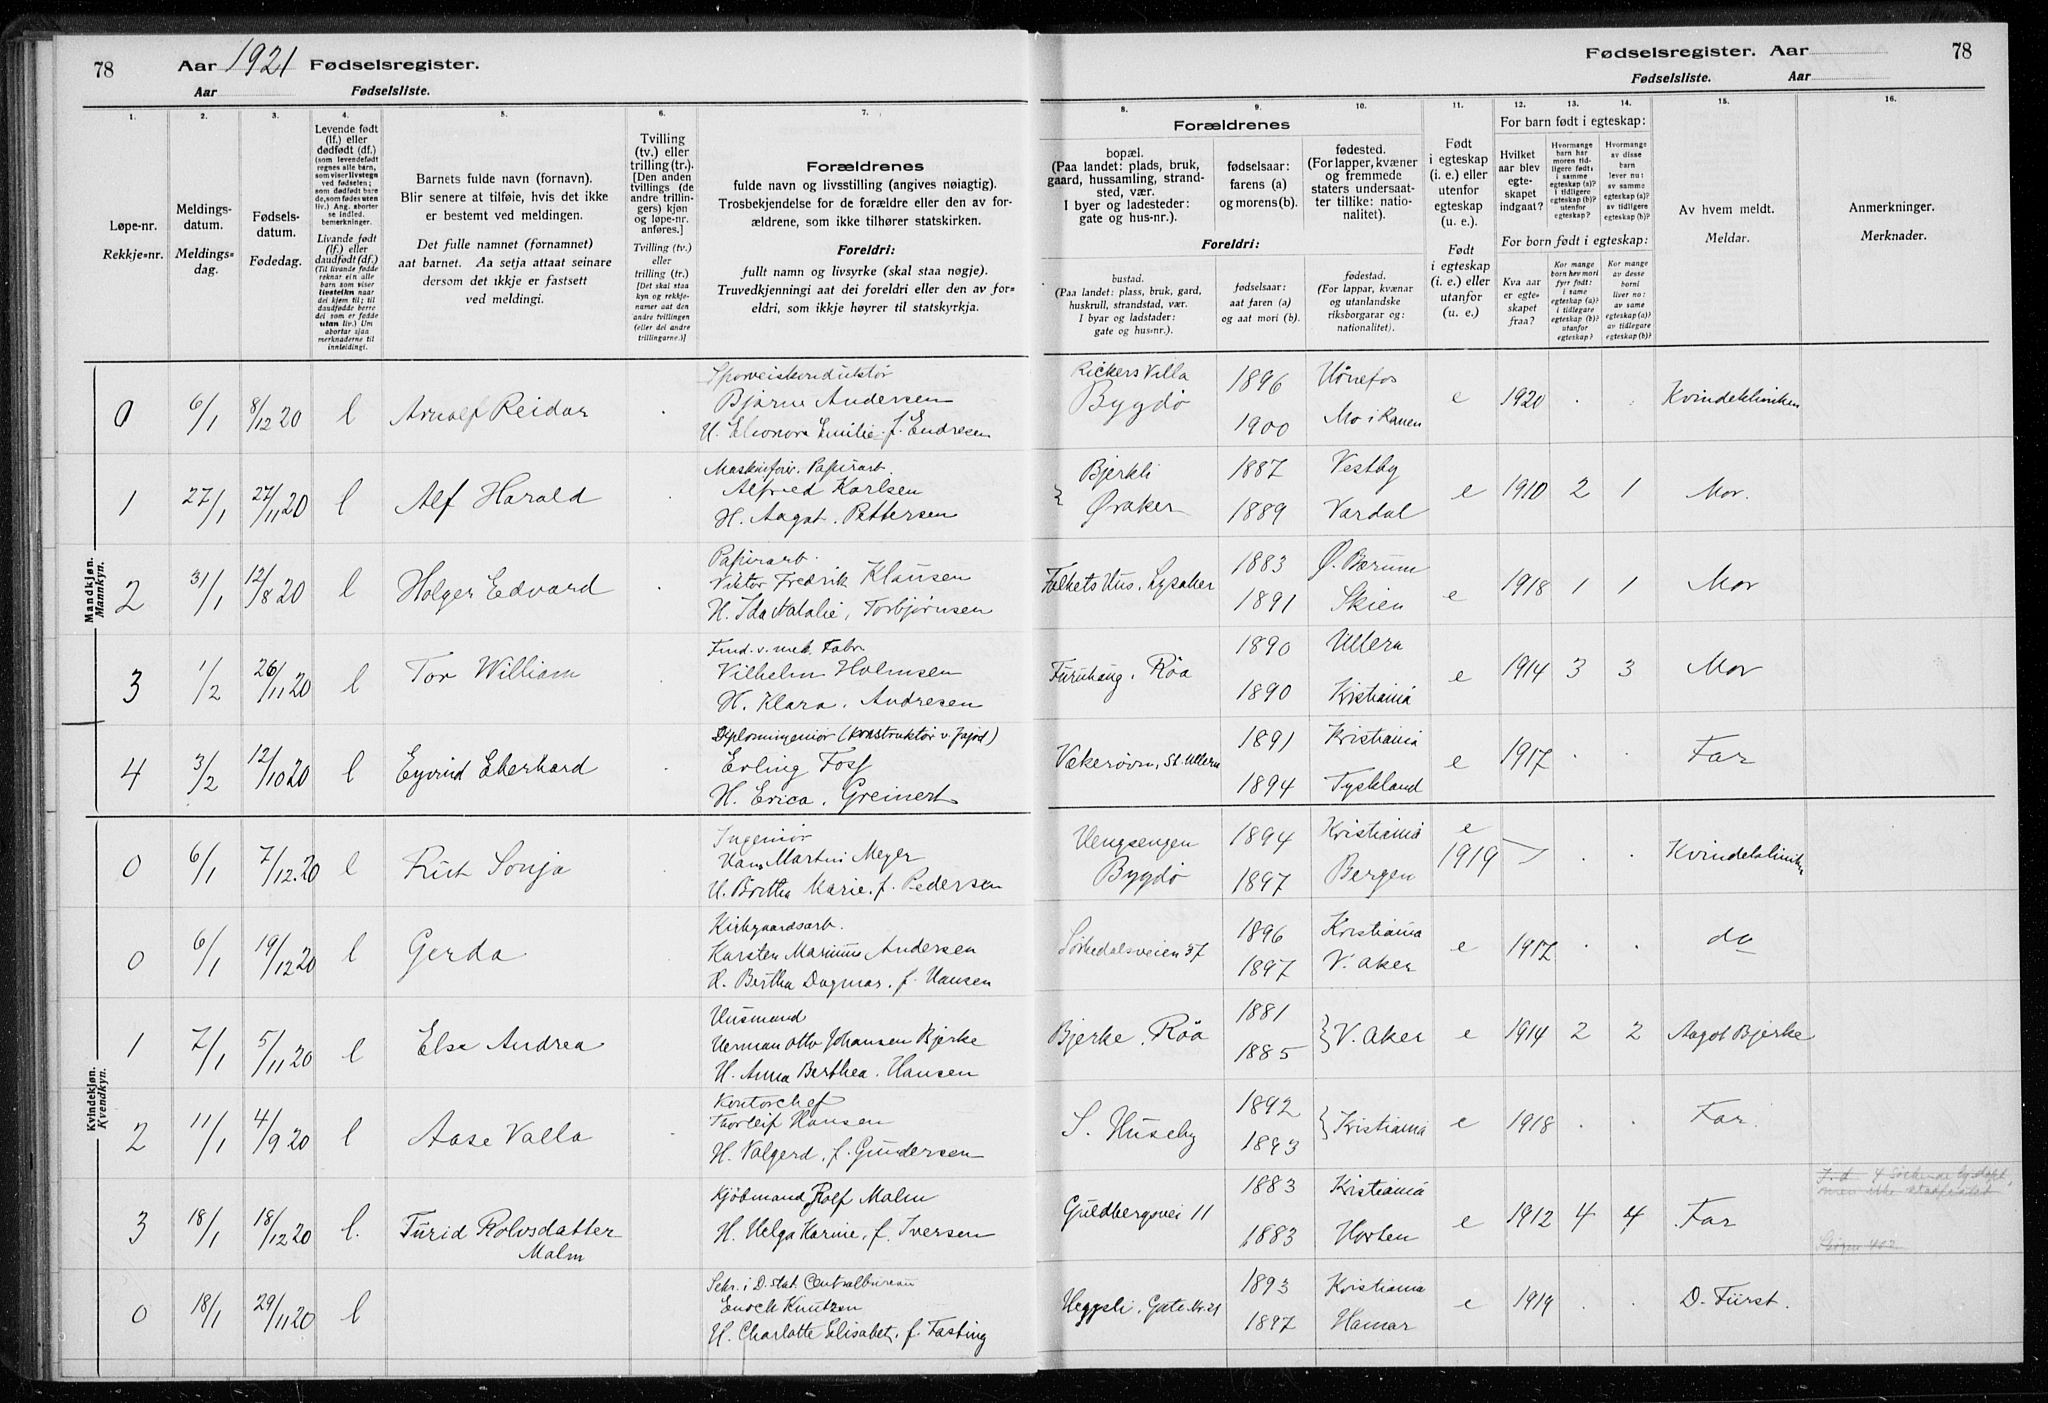 78 Aar 1921 Fødselsregister.
Aar Fødselsliste.
Fødselsregister. Aar 78
Fødselsliste. Aar
1. 2. 3. 4. 5. 6. 7.
8. 9. 10. 11. 12. 13. 14. 15. 16.
Løpe-nr.
Rekkje-nr.
Meldings-
datum.
Meldings-
dag.
Fødsels-
datum.
Fødedag.
Levende født
(lf.) eller
dødfødt (df.)
(som levendefødt
regnes alle barn,
som viser livstegn
ved fødselen;
som dødfødt bare
de, som fødes uten
liv.) Ang. aborter
se indled.
bemerkninger.
Livande født
(lf.) eller
daudfødt (df.)
(Til livande fødde
reknar ein alle
barn som viser
livsteikn naar
dei kjem til; til
daudfødde berre
dei som er fødde
utan liv.) Um
abortar sjaa
merknaderne til
innleidingi.
Barnets fulde navn (fornavn).
Blir senere at tilføie, hvis det ikke
er bestemt ved meldingen.
Det fulle namnet (fornamnet)
aat barnet. Aa setja attaat seinare
dersom det ikkje er fastsett
ved meldingi.
Tvilling
(tv.) eller
trilling (tr.)
[Den anden
tvillings (de
andre trillin-
gers) kjøn
og løpe-nr.
anføres.]
Tvilling (tv.)
eller
trilling (tr.)
[Det skal staa
kyn og rekkje-
nomer aat den
andre tvillingen
(eller dei andre
trillingarne.)]
Forældrenes
fulde navn og livsstilling (angives nøiagtig).
Trosbekjendelse for de forældre eller den av for-
ældrene, som ikke tilhører statskirken.
Foreldri:
fullt namn og livsyrke (skal staa nøgje).
Truvedkjenningi aat dei foreldri eller den av for-
eldri, som ikkje høyrer til statskyrkja.
Forældrenes
bopæl.
(Paa landet: plads, bruk,
gaard, hussamling, strand-
sted, vær.
I byer og ladesteder:
gate og hus-nr.).
fødselsaar:
farens (a)
og morens (b).
fødested.
(For lapper, kvæner
og fremmede
staters undersaat-
ter tillike: natio-
nalitet).
Foreldri:
bustad.
(Paa landet: plass, bruk, gard,
huskrull, strandstad, vær.
I byar og ladstader:
gate og hus-nr.).
fødselsaar:
aat faren (a)
og aat mori (b).
fødestad.
(For lappar, kvænar
og utanlandske
riksborgarar og:
nationalitet).
Født
i egteskap
(i. e.) eller
utenfor
egteskap
(u. e.)
Født
i egteskap
(i. e.) eller
utanfor
(u. e.)
For barn født i egteskap:
Hvilket
aar blev
egte-
skapet
indgaat?
Hvormange
barn har
moren tid-
ligere født:
i samme
egteskap (a)?
i tidligere
egteskap (b)?
utenfor
egteskap?
Hvormange
av disse
barn
lever nu:
av samme
egteskap (a)?
av tidligere
egteskap (b)?
For born født i egteskap:
Kva aar
er egte-
skapet
fraa?
Kor mange
born hev mori
fyrr født:
i same
egteskap (a)?
i tidlegare
egteskap (b)?
utanfor
egteskap?
Kor mange
av desse
borni
liver no:
av same
egteskap (a)?
av tidlegare
egteskap (b)?
Av hvem meldt.
Meldar.
Anmerkninger.
Merknader.
Mandkjøn.
Mannkyn.
0 6/1 8/12 20 l Arnolf Reidar Sporveiskonduktør
Bjarne Andersen
H. Eleonora Emilie f. Endresen Rickers Villa
Bygdø 1896
1900 Hønefos
Mo i Ranen e 1920 . . Kvindekliniken
1 27/1 27/11 20 l Alf Harald Maskinfører. Papirarb.
Alfred Karlsen
H. Aagot. Pettersen Bjerkli
Øraker 1887
1889 Vestby
Vardal e 1910 2 1 Mor.
2 31/1 12/8 20 l Holger Edvard Papirarb.
Viktor Fredrik Klausen
H. Ida Natalie, Torbjørnsen Folkets Hus. Lysaker 1883
1891 Ø. Bærum
Skien e 1918 1 1 Mor
3 1/2 26/11 20 l Tor William
Vilhelm Holmsen
H. Klara. Andresen Furuhaug, Røa 1890
1890 Ullern
Kristiania e 1914 3 3 Mor
4 3/2 12/10 20 l Eyvind Eberhard Diplomingeniør (konstruktør v.
Erling Foss
H. Erica. Greinert Vækerøvn, St. Ullern 1891
1894 Kristiania
Tyskland e 1917 . . Far
Kvindekjøn.
Kvendkyn.
0 6/1 7/12.20 l Rut Sonja Ingeniør
Hans Martin Meyer
H. Bertha Marie. f. Pedersen Hengsengen
Bygdø 1894
1897 Kristiania
Bergen e
1919 . . Kvindekliniken
0 6/1 19/12 20 l Gerda Kirkgaardsarb.
Karsten Marinus Andersen
H. Bertha Dagmar. f. Hansen Sørkedalsveien 37 1896
1897 Kristiania
V. Aker e 1917 . . do
1 7/1 5/11 20 l Else Andrea Husmand
Herman Otto Johansen Bjerke
H. Anna Berthea. Hansen Bjerke. Røa 1881
1885 V. Aker e 1914 2 2 Aagot Bjerke
2 11/1 4/9 20 l Aase Valla Kontorchef
Thorleif Hansen
H. Valgerd, f. Gundersen S. Huseby 1892
1893 Kristiania e 1918 . . Far.
3 18/1 18/12 20 l. Turid Rolvsdatter
Malm Kjøbmand Rolf Malm
H. Helga Karine, f. Iversen Guldbergsvei 11 1883
1883 Kristiania
Horten e 1912 4 4 Far
0 18/1 29/11 20 l Sekr. i D. stat. Centralbureau
Enoch Knutzen
H. Charlotte Elisabet, f. Fasting Heggeli. Gate Nr. 21 1893
1897 Kristiania
Hamar e 1919 . . D. Fürst.